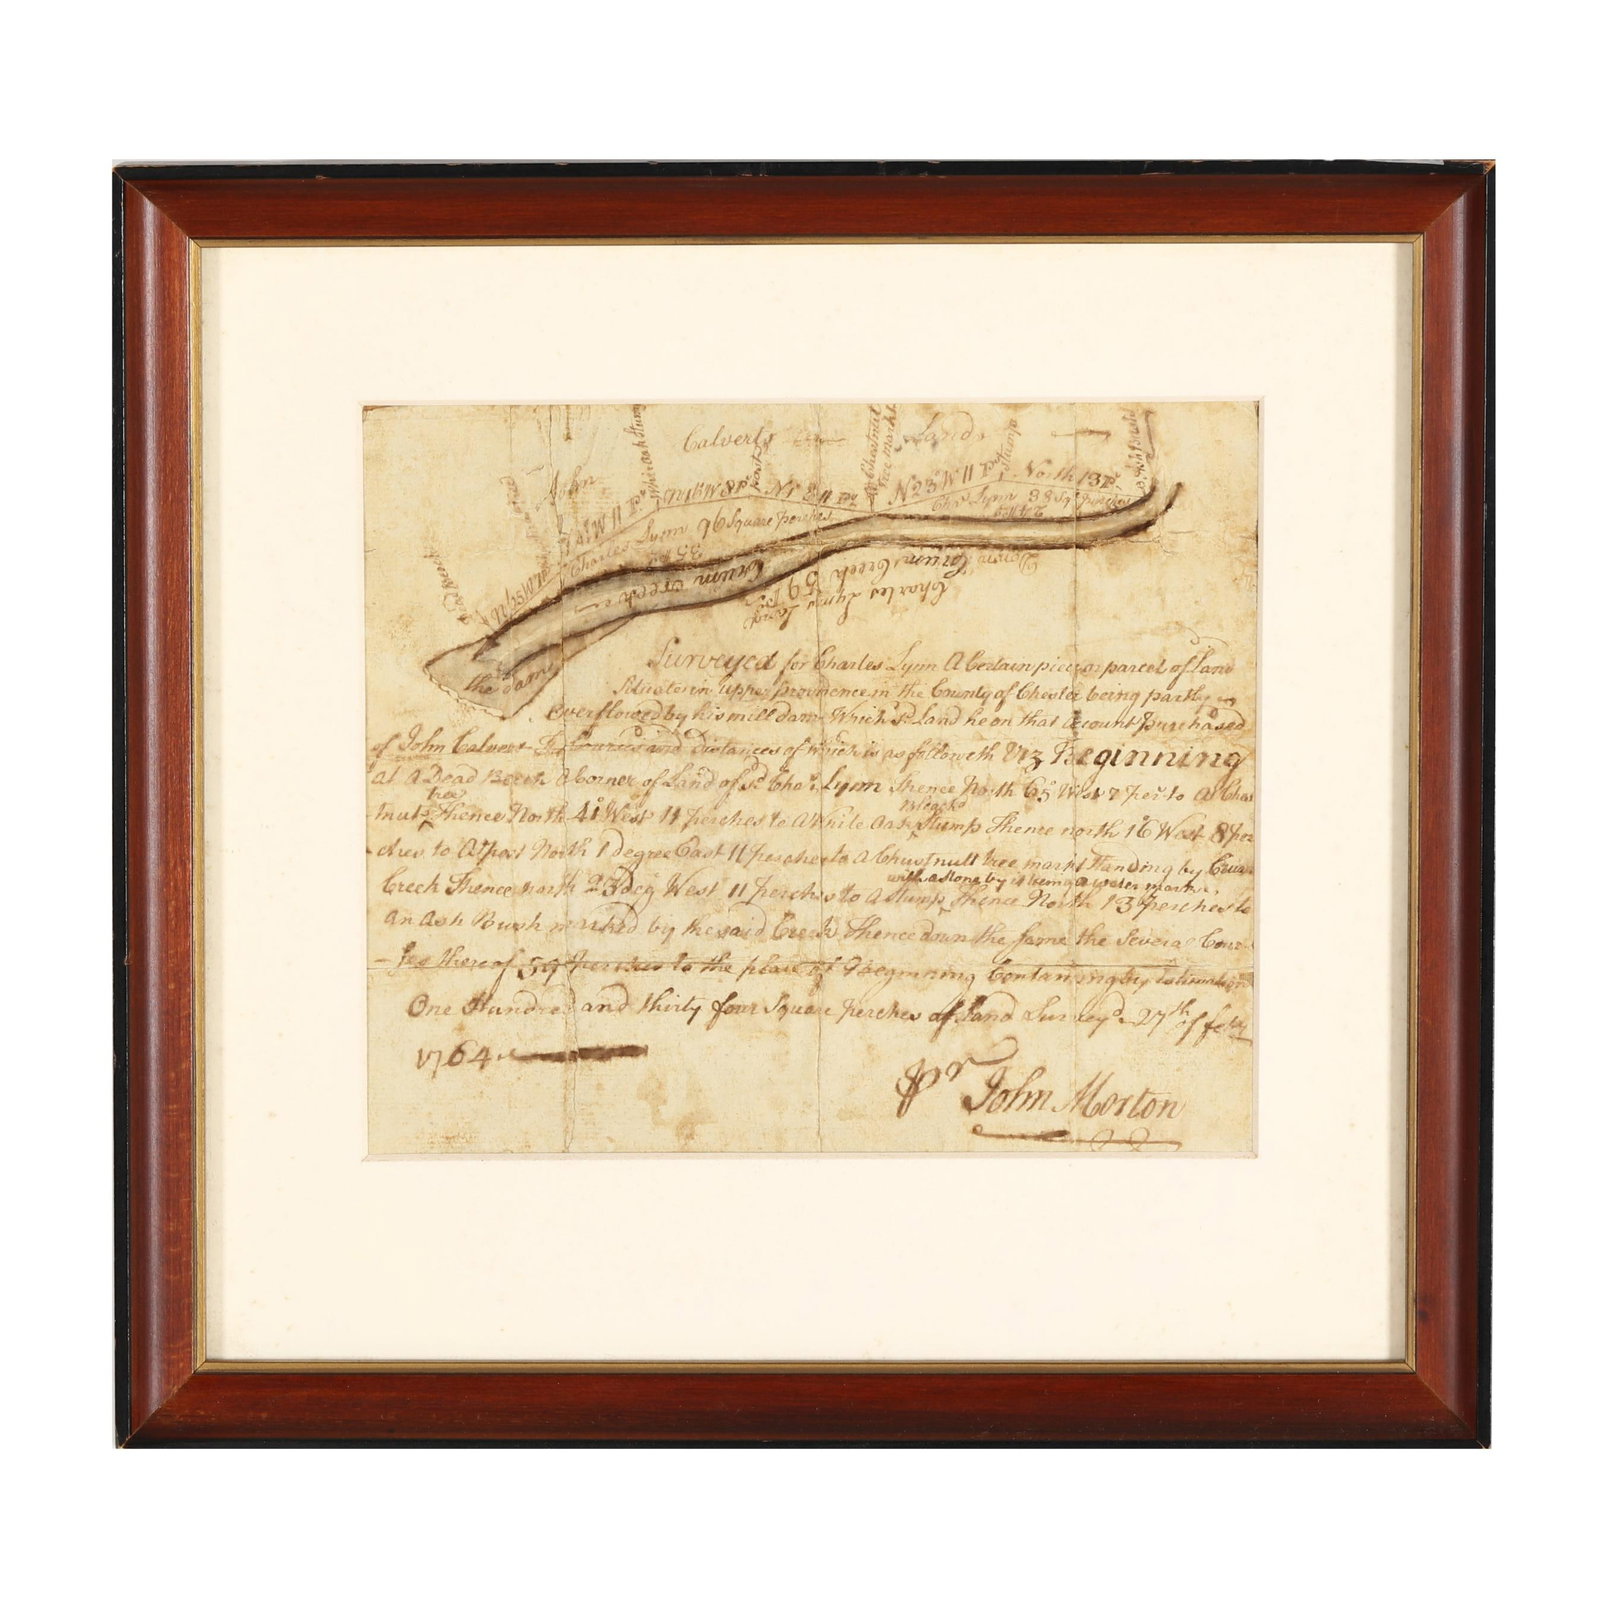 Calverts Lands
John
N 16 W 8 Pr
N 23 W 11 Pr
North 13 Pr
N 41 W 11 Pr
N 65 W
Charles Lynn 96 Square perches
Chas Lynn 38 Sqr perches
Crum Creek
Crum Creek 59
Charles Lyns Land
the dam
Surveyed for Charles Lynn A Certain piece or parcel of Land
Situate in upper providence in the County of Chester being partly
overflowed by his mill dam Which sd Land he on that account purchased
of John Calvert The Courses and distances of which is as followeth Viz Beginning
at A Dead Beech A Corner of Land of sd Chas Lynn Thence North 65 West 7 per to A Ches
tree
-nut Thence North 41° West 11 perches to A White oak Stump Thence north 16 West 8 per
-ches to A post North 1 degree East 11 perches to a Chustnutt tree markt Standing by Crum
with a stone by it being a water mark
Creek Thence north 23 deg West 11 perches to A Stump Thence North 13 perches to
an ash Bush marked by the said Creek Thence down the same the Several Cour-
-ses thereof 59 perches to the place of Beginning Containing by Estimation
One Hundred and thirty four Square perches of Land Surveyd 27th of feby
1764
Pr John Morton